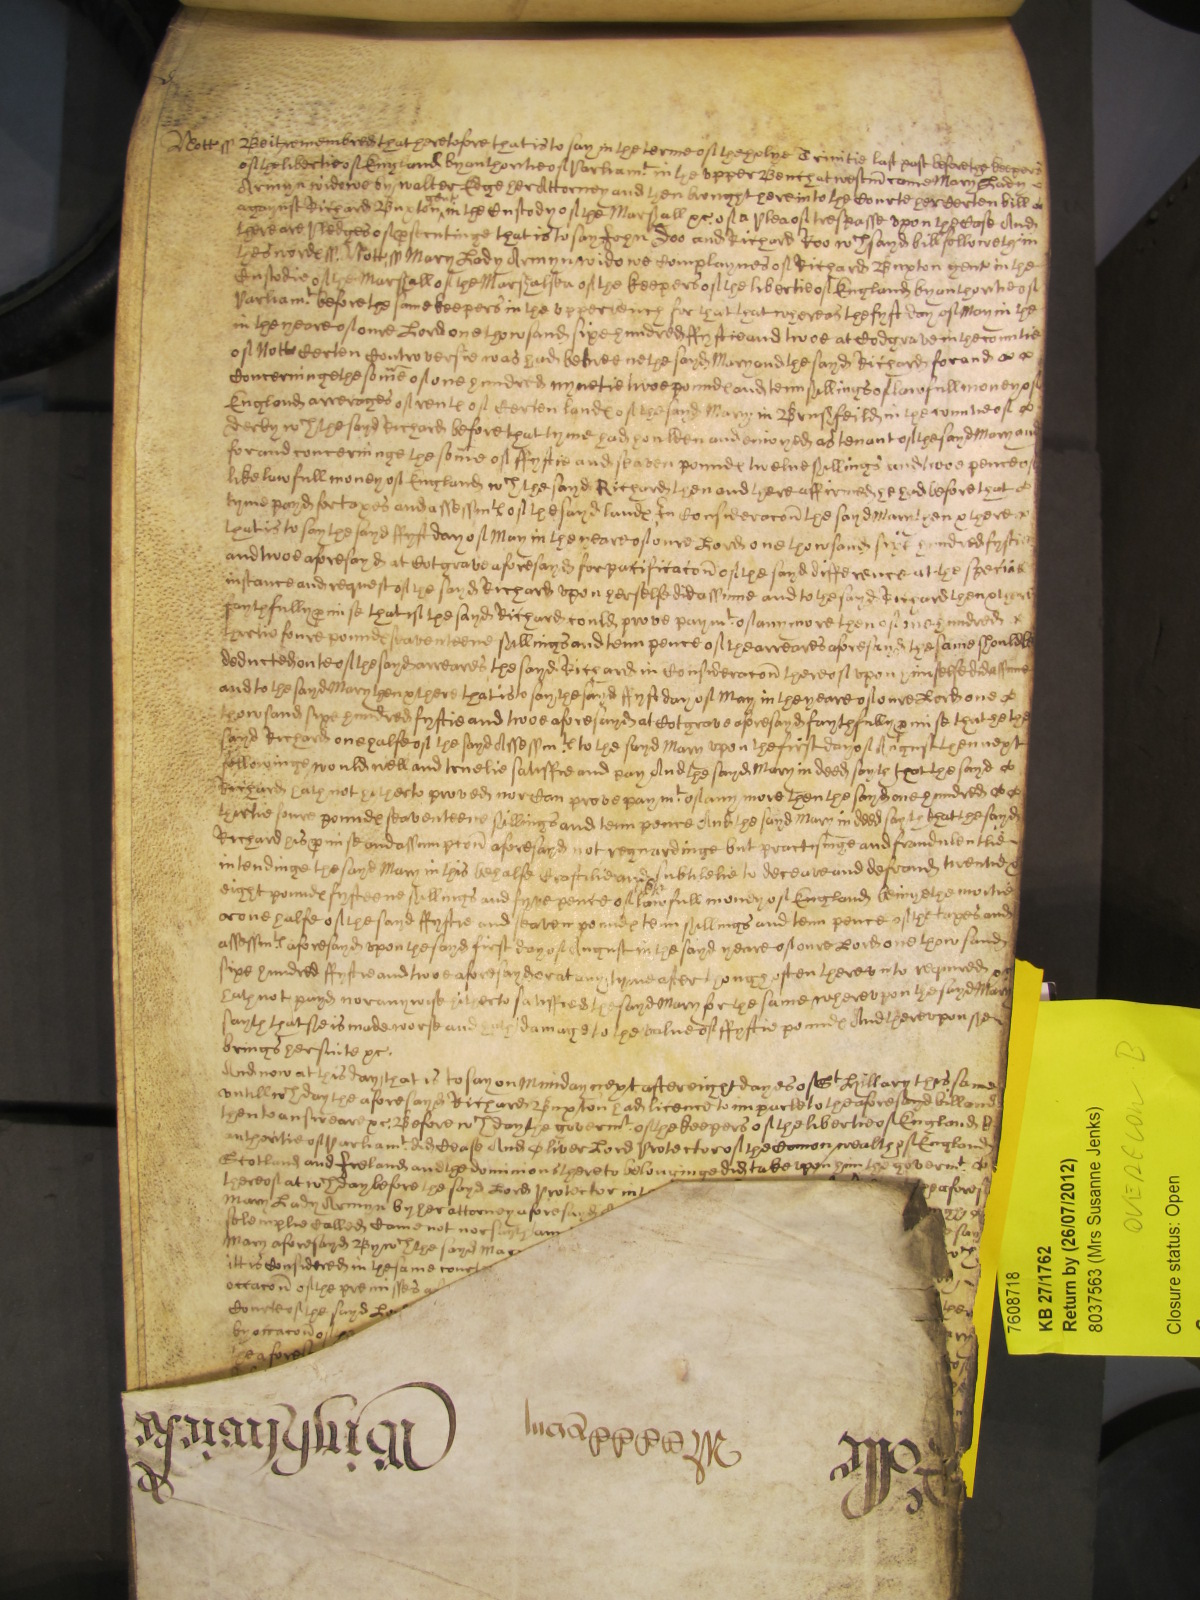 Nott ss Be it remembred that heretofore that is to say in the terme of the holye Trinitie last past before the keepers
of the libertie of England by authoritie of Parliamt in the upper Bench at westm came Mary Lady
Armyn widowe by walter Edge her Attorney and then brought here into the Courte her Certen bill
against Richard Buxton gent in the Custody of the Marshall &c of a plea of trespasse upon the Case And
there are pledges of psecutinge that is to say John Doo and Richard Roo wch sayd bill followeth in
thes wordes ss Nott ss Mary Lady Armyn widowe Complaynes of Richard Buxton gent in the
Custodie of the Marshall of the Marshalsea of the keepers of the libertie of England by authoritie of
Parliamt before the same keepers in the upper bench for that that whereas the fyft day of May in the
in the yeare of oure Lord one thowsand sixe hundred ffyftie and twoe at Codgrave in the countie
of Nott Certen Controversie was had betweene the sayd Mary and the sayd Richard for and
Concerninge the some of one hundred nynetie twoe poundx and tenn shillings of lawfull money of
England arrerages of rentx of Certen landx of the sayd Mary in Brushfeild in the countie of
derby wch the sayd Richard before that tyme had houlden and enioyed as tenant of the sayd Mary and
for and concerninge the some of ffyftie and seaven poundx twelve shillings and twoe pence of
like lawfull money of England wch the sayd Richard then and there affirmed he had before that
tyme payd for taxes and assessmtx of the sayd landx In Consideracon the sayd Mary then & there
that is to say the sayd ffyft day of May in the yeare of oure Lord one thowsand sixe hundred fyftie
and twoe aforesayd at Cotgrave aforesayd for pacificacon of the sayd difference at the speciall
instance and request of the sayd Richard upon her selfe did assume and to the sayd Richard then & there
faythfully pmise that if the sayd Richard could prove paymt of any more then of one hundred
thirtie foure poundx seaventeene shillings and tenn pence of the arreares aforesayd the same should be
deducted out of the sayd arreares the sayd Richard in Consideracon thereof upon himselfe did assume
and to the sayd Mary then & there that is to say the sayd ffyft day of May in the yeare of oure Lord one
thowsand sixe hundred fyftie and twoe aforesayd at Cotgrave aforesayd faythfully pmise that he the
sayd Richard one halfe of the sayd Assessmtx to the sayd Mary upon the first day of August then next
followinge would well and truelie satisfie and pay And the sayd Mary in deed sayth that the sayd
Richard hath not hitherto proved nor can prove paymt of any more then the sayd one hundred
thirtie foure poundx seaventeene shillings and tenn pence And the sayd Mary in deed sayth that the sayd
Richard his pmise and assumpcon aforesayd not reguardinge but practisinge and fraudulentlie
intendinge the sayd Mary in this behalfe Craftilie and subtilelie to deceave and defraud twentie
eight poundx fyfteene shillings and fyve pence of lawfull money of England beinge the moitie
or one halfe of the sayd ffyftie and seaven poundx tenn shillings and tenn pence of the taxes and
assessmtx aforesayd upon the sayd first day of August in the sayd yeare of oure Lord one thowsand
sixe hundred ffyftie and twoe aforesayd or at any tyme after though often thereunto required
hath not payd nor anywise hitherto satisfied the sayd Mary for the same whereupon the sayd Mary
sayth that she is made worse and hath damage to the value of ffyftie poundx And thereupon shee
brings her suite &c.
And now at this day that is to say on Munday next after eight dayes of St Hillary this same
untill wch day the aforesayd Richard Buxton had licence to imparle to the aforesayd bill and
then to answeare &c. Before wch day the govermt of the keepers of the libertie of England by
authoritie of Parliamt did Cease And Oliver Lord Protector of the Comonwealth of England
Scotland and Ireland and the dominions thereto belonginge did take upon him the govermt
thereof at wch day before the sayd Lord Protector in
Mary Lady Armyn by her attorney aforesayd
solemplie Called Came not nor sayth any
Mary aforesayd By wch the sayd Mary
itt is Considered in the same court
occacon of the premisses
Courte of the sayd Lord
by occacon of
the aforesayd
Rolle
Madddvm
Winghtwicke
7608718
KB 27/1762
Return by (26/07/2012)
8037563 (Mrs Susanne Jenks)
OVERECON B
Closure status: Open